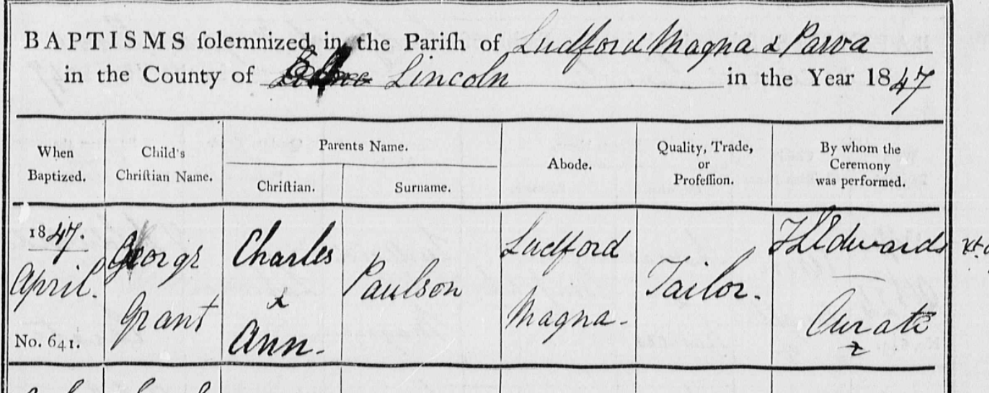 BAPTISMS solemnized in the Parish of Ludford Magna & Parva
in the County of Lincoln in the Year 1847
When Baptized.
Child's Christian Name.
Parents Name.
Christian.
Surname.
Abode.
Quality, Trade, or Profession.
By whom the Ceremony was performed.
1847.
April.
No. 641.
George
Grant
Charles
&
Ann.
Paulson
Ludford
Magna.
Tailor.
Edwards
Curate